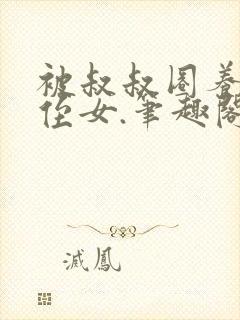 被叔叔圈养
侄女.笔趣阁
滅鳳